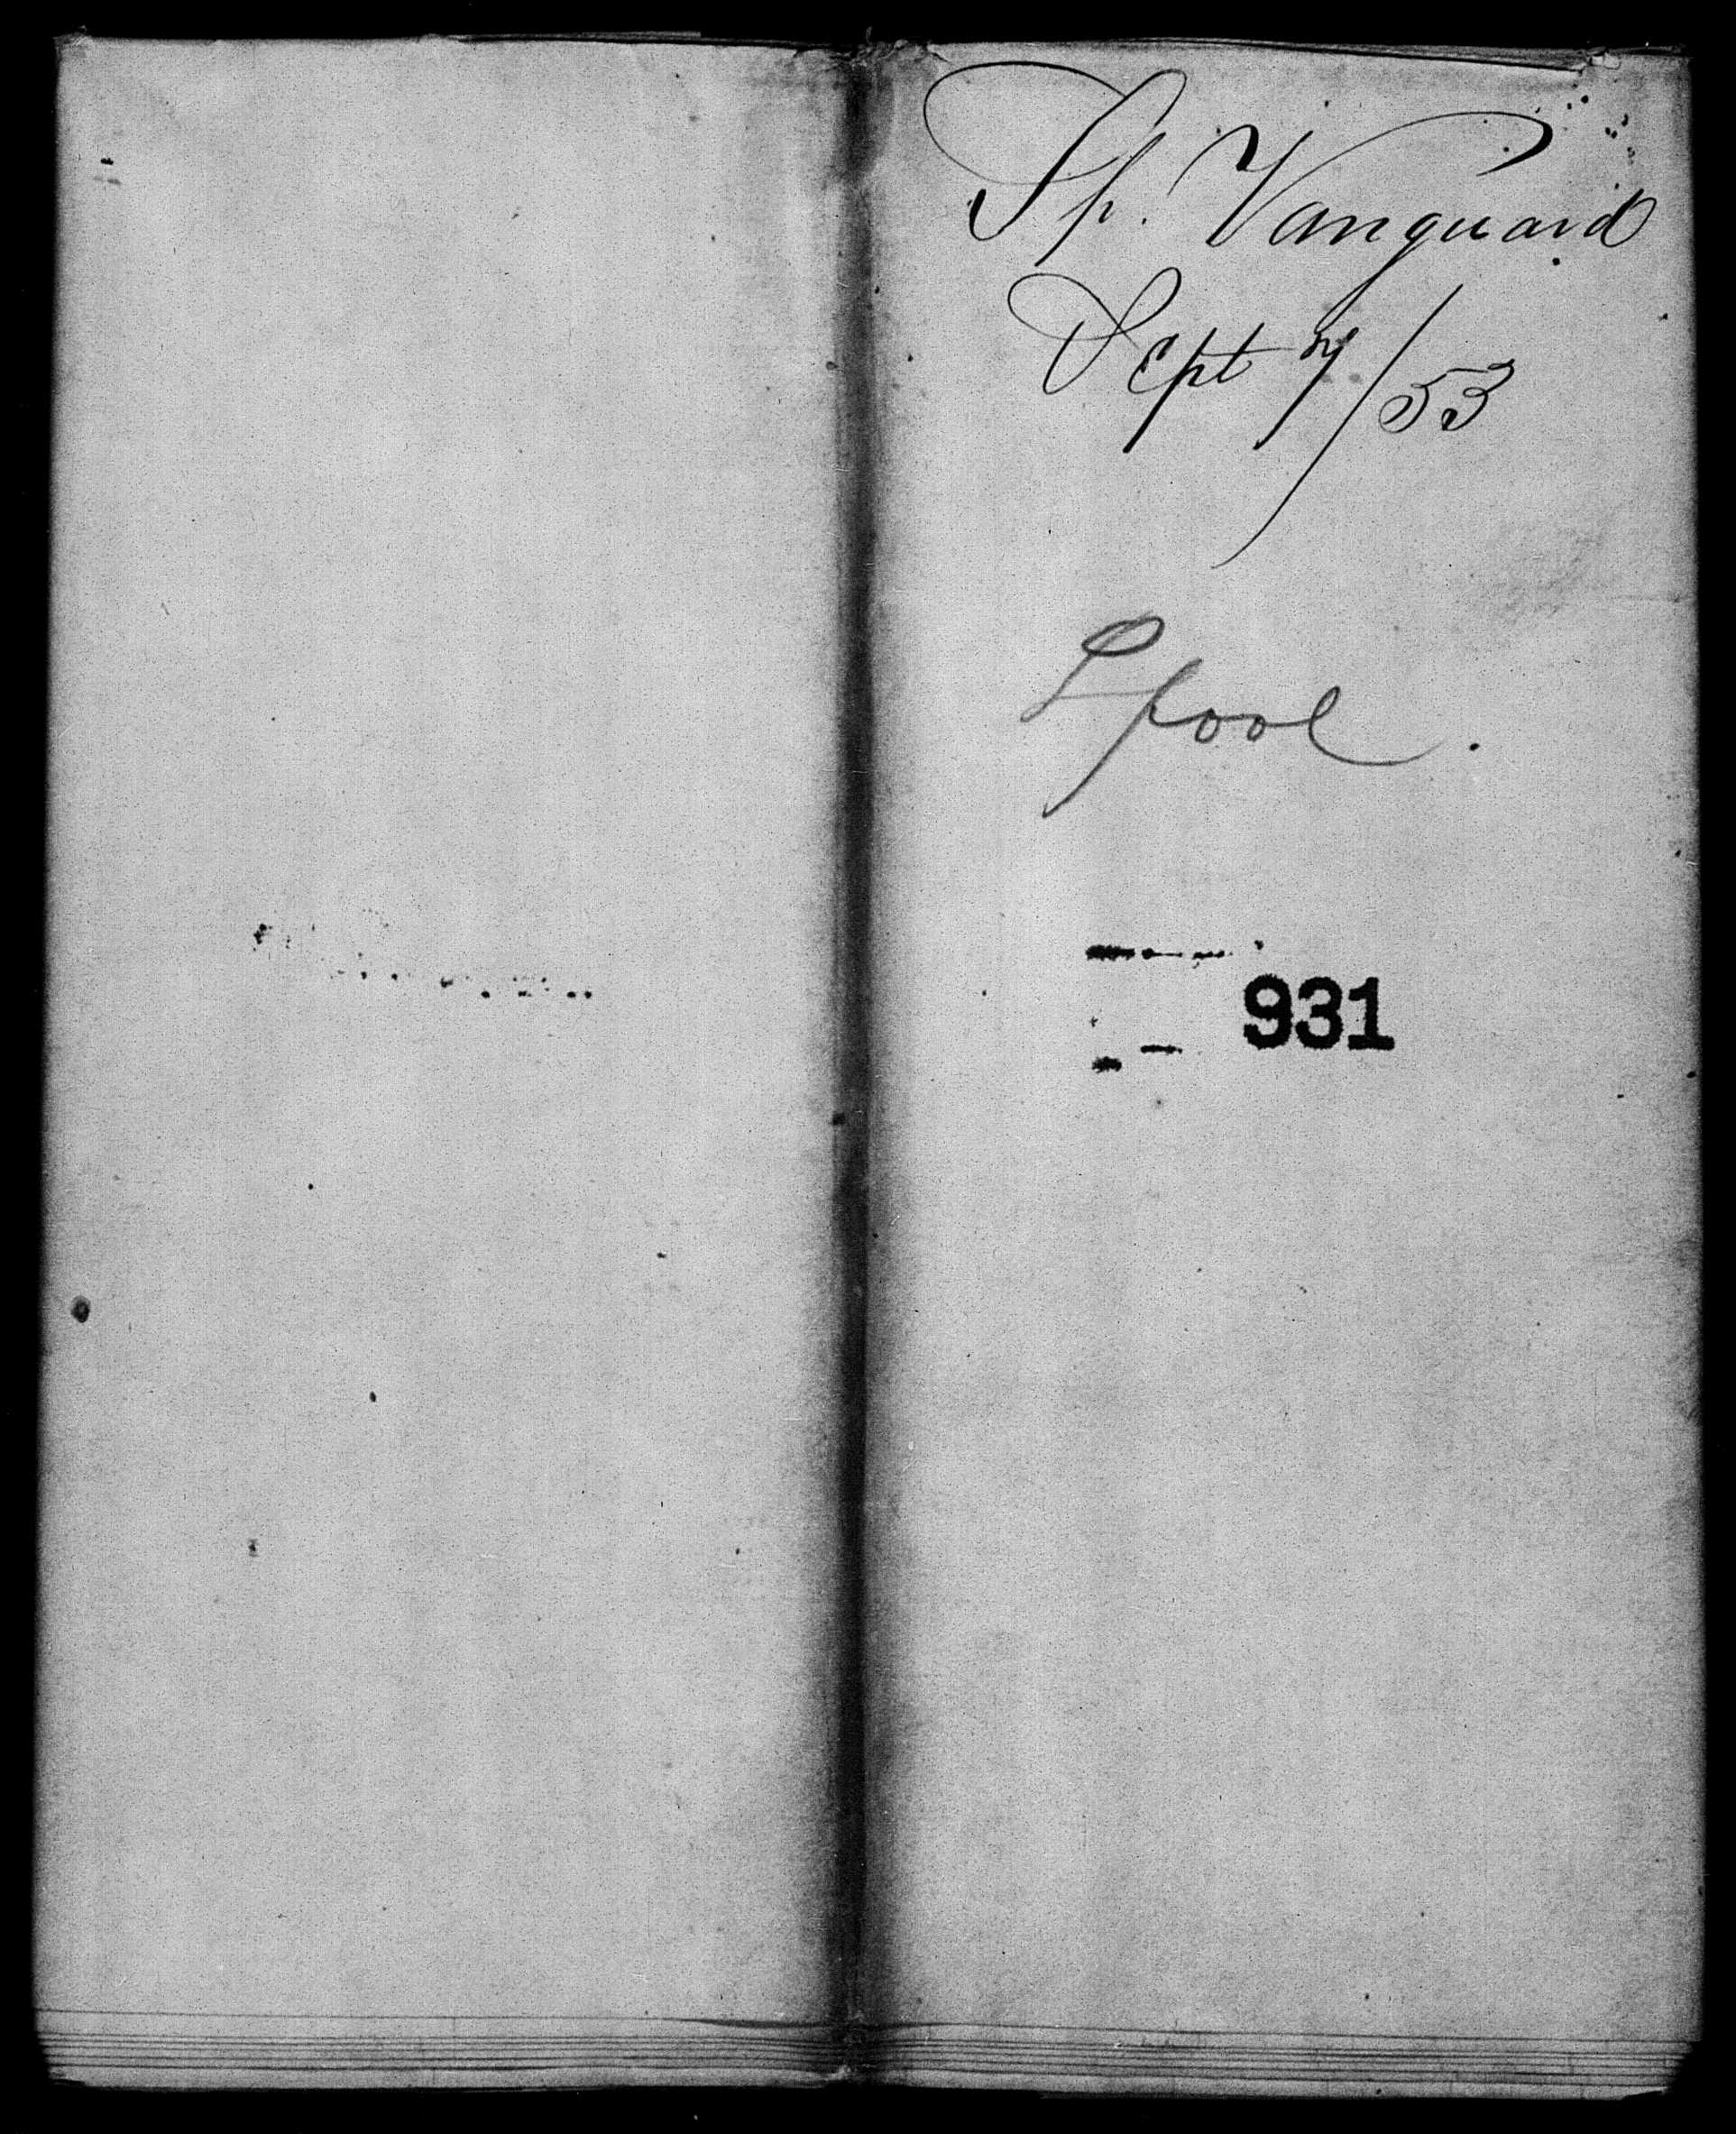 Sh. Vanguard
Sept 7/53
Lpool.
931